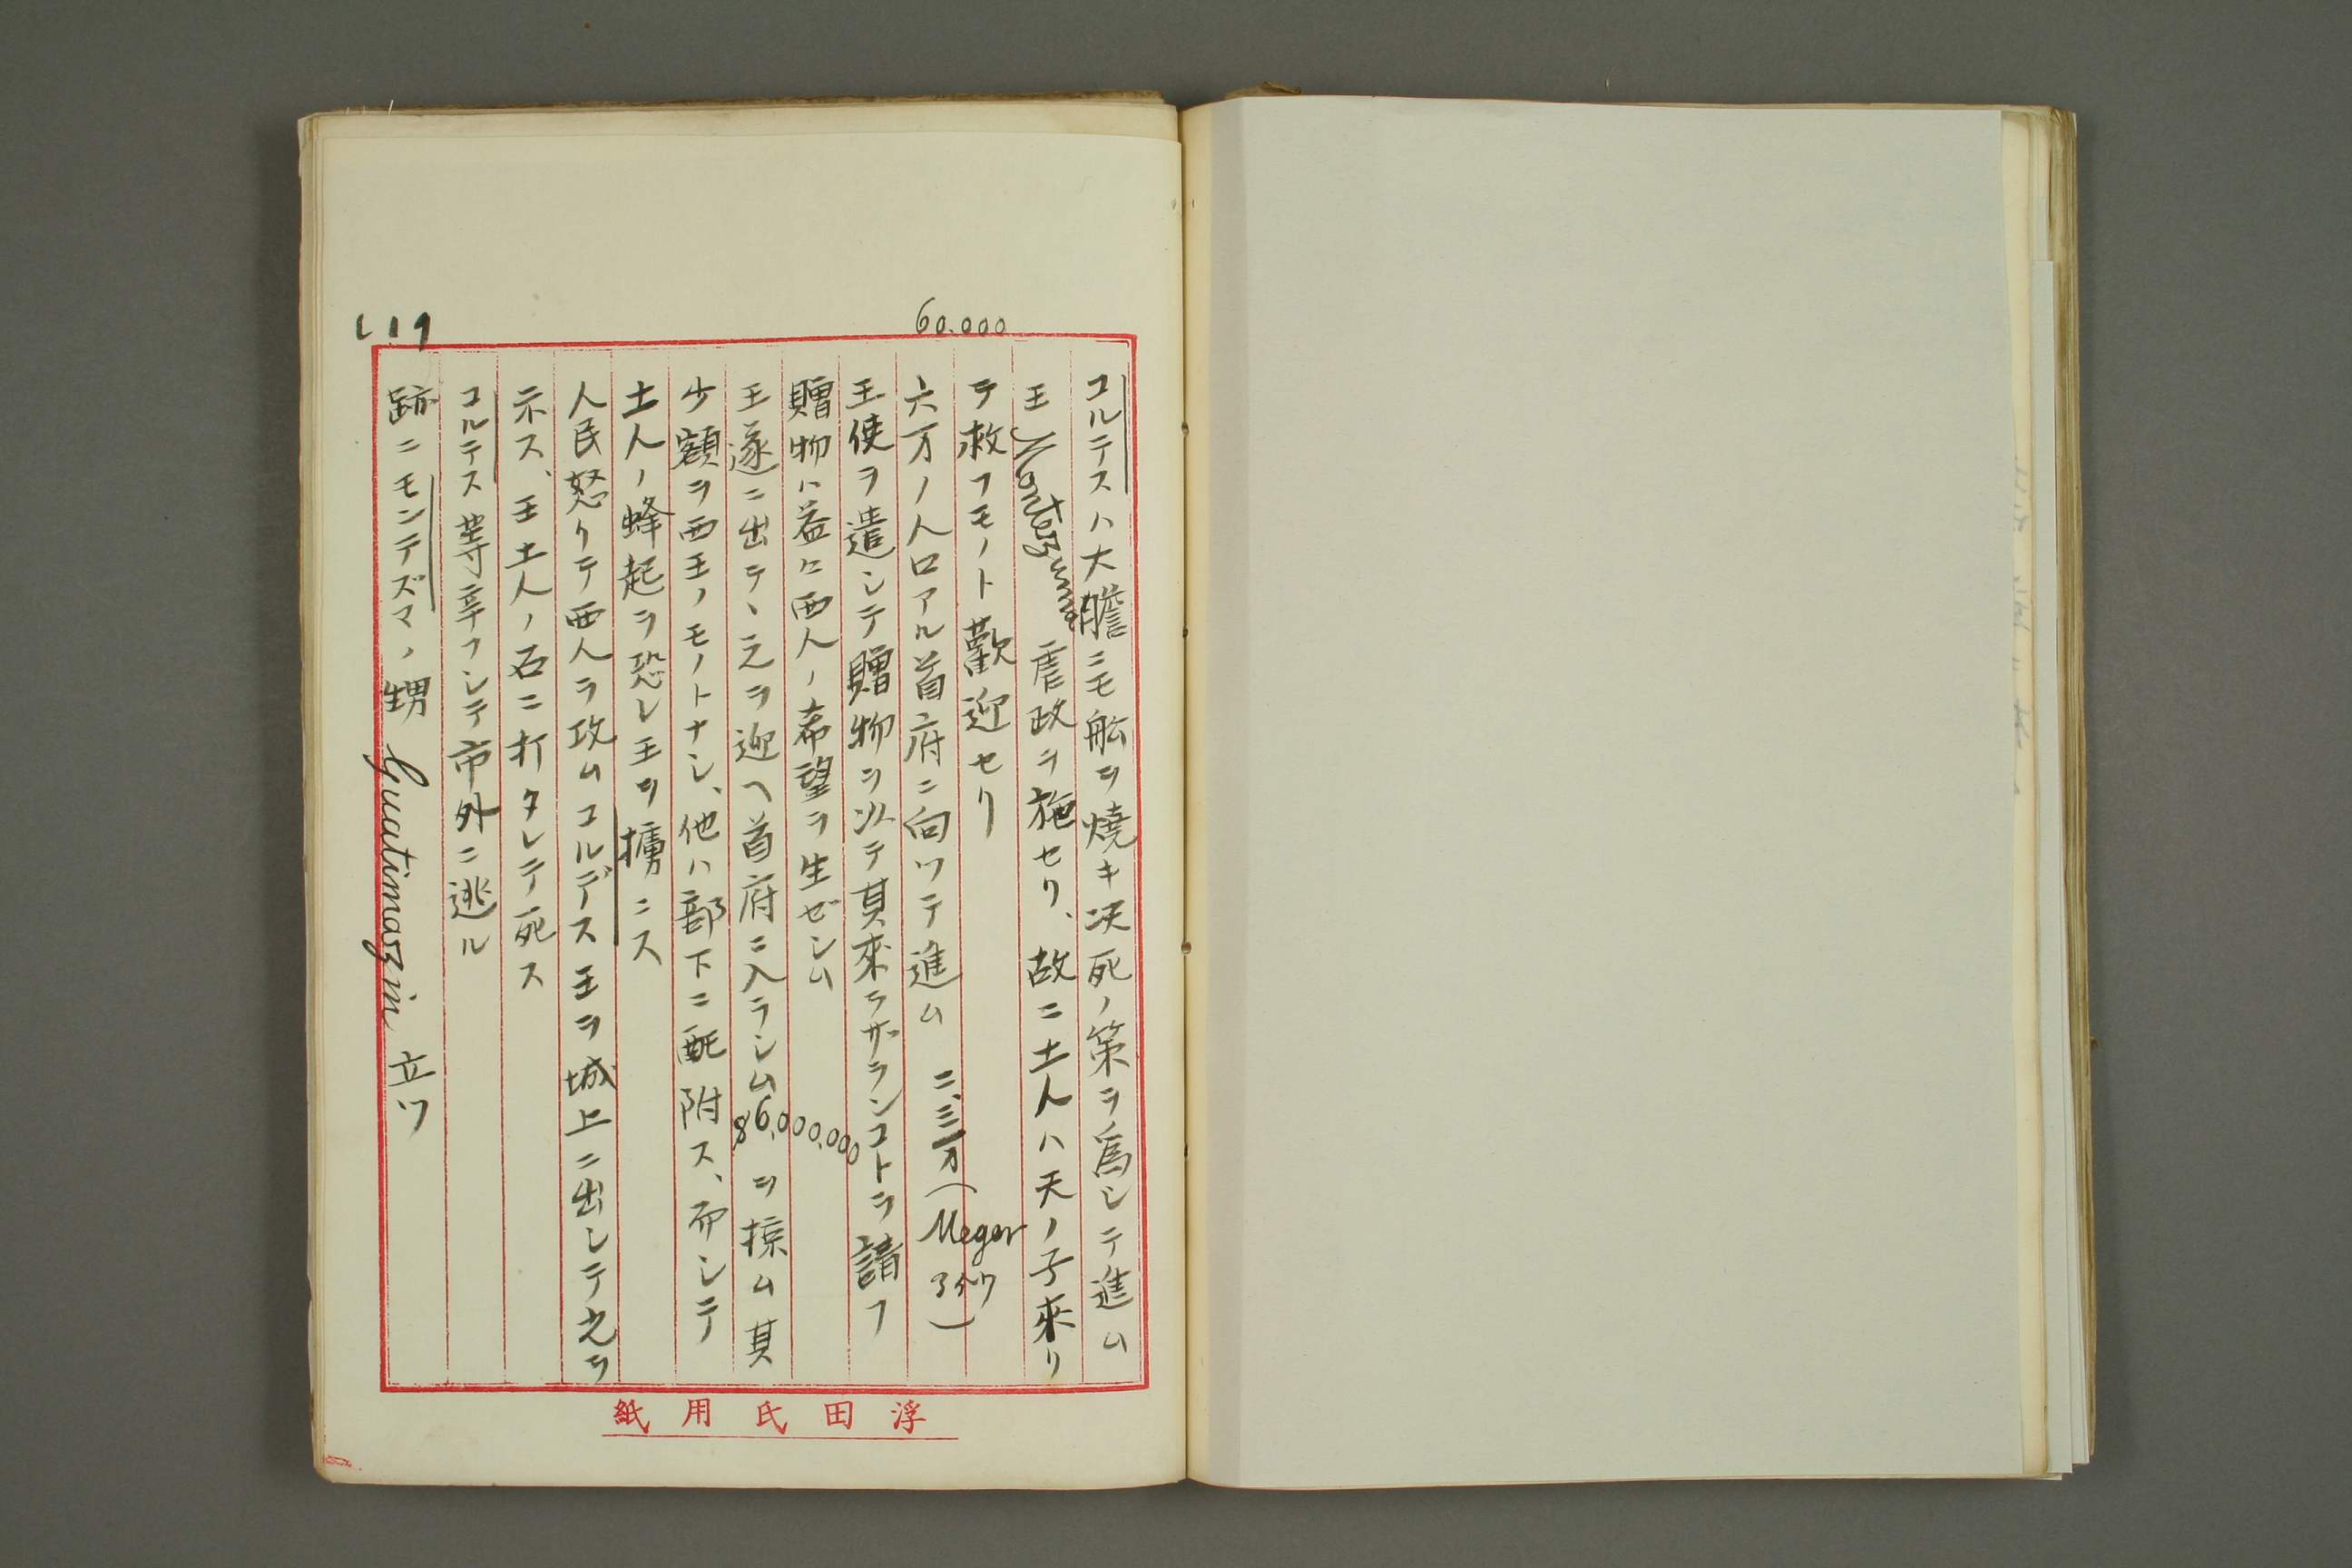 60.000
コルテスハ大膽ニモ舩ヲ燒キ决死ノ策ヲ爲シテ進ム
王 Montezuma 虐政ヲ施セリ、故ニ土人ハ天ノ子來リ
テ救フモノト歡迎セリ
六万ノ人口アル首府ニ向ツテ進ム 二、三万(Meger
王使ヲ遣シテ贈物ヲ以テ其來ラザランコトヲ請フ
贈物ハ益々西人ノ希望ヲ生ゼシム
王遂ニ出テ、之ヲ迎ヘ首府ニ入ラシム 86,000.000 ヲ掠ム其
少額ヲ西王ノモノトナシ、他ハ部下ニ配附ス、而シテ
土人ノ蜂起ヲ恐レ王ヲ擄ニス
人民怒リテ西人ヲ攻ムコルデス王ヲ城上ニ出シテ之ヲ
示ス、王土人ノ石ニ打タレテ死ス
コルテス等辛フシテ市外ニ逃ル
跡ニモンテズマノ甥 Guatimozin 立ツ
119
浮田氏用紙